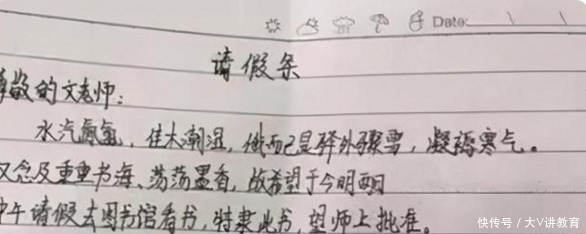 Date:
请假条
尊敬的文老师：
水汽氤氲，佳木潮湿，俄而已是驿外骤雪，凝褥寒气。
又念及重重书海、荡荡墨香，故希望于今明两日
中午请假去图书馆看书，特隶此书，望师上批准。
快传号／大V讲教育